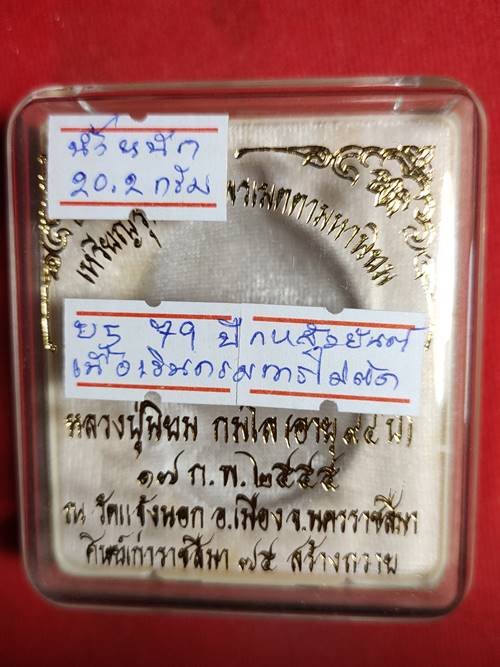 น้ำหนัก
20.2 กรัม
เหรียญรุ่
พรเมตตามหานิยม
บร 79 ปี หลังยันต์
เนื้อเงินกรรมการไม่ตัด
หลวงปู่นิยม กมโล (อายุ ๙๕ ปี)
๑๗ ก.พ.๒๕๕๕
ณ วัดแจ้งนอก อ.เมือง จ.นครราชสีมา
ศิษย์เก่าราชสีมา ๗๕ สร้างถวาย